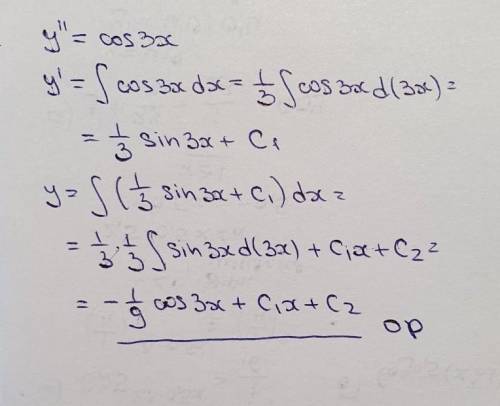 y'' = cos3x
y' = ∫ cos3x dx = 1/3 ∫ cos3x d(3x) =
= 1/3 sin3x + C₁
y = ∫ (1/3 sin3x + C₁) dx =
= 1/3 · 1/3 ∫ sin3x d(3x) + C₁x + C₂ =
= - 1/9 cos3x + C₁x + C₂
op